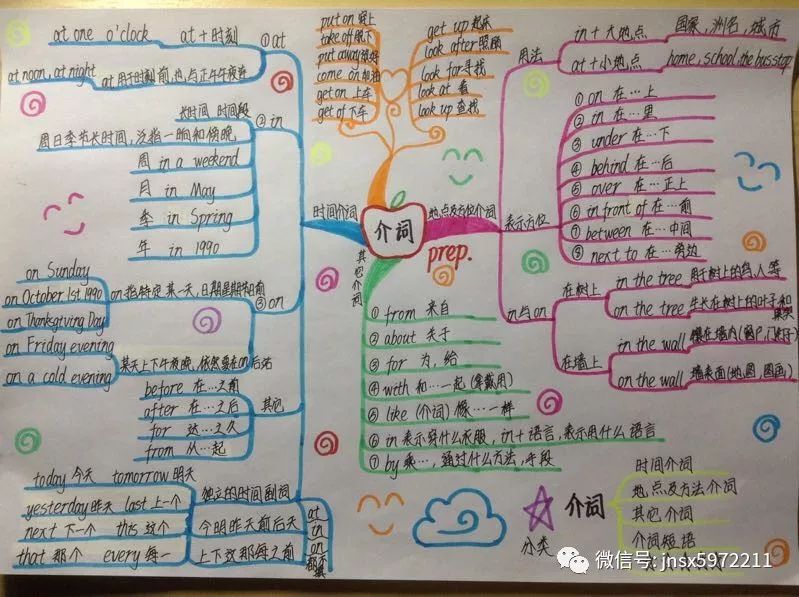 介词
prep.
时间介词
① at
at + 时刻
at one o'clock
at 用于时刻前,也与正午午夜连
at noon, at night
② in
长时间 时间段
周日季节长时间,泛指一晌和傍晚
周 in a weekend
月 in May
季 in Spring
年 in 1990
③ on
on 指特定某一天,日期星期和前
on Sunday
on October 1st 1990
on Thanksgiving Day
某天上下午夜晚,依然要在on后站
on Friday evening
on a cold evening
其它
before 在…之前
after 在…之后
for 达…之久
from 从…起
独立的时间副词
today 今天 tomorrow 明天
yesterday 昨天 last 上一个
next 下一个 this 这个
that 那个 every 每一
今明昨天前后天
上下这那每之前
at
in
on
put on 穿上
take off 脱下
put away
come on 加油
get on 上车
get of 下车
get up 起床
look after 照顾
look for 寻找
look at 看
look up 查找
地点及方位介词
用法
in + 大地点
国家、洲名,城市
at + 小地点
home, school, the bus stop
表示方位
① on 在…上
② in 在…里
③ under 在…下
④ behind 在…后
⑤ over 在…正上
⑥ in front of 在…前
⑦ between 在…中间
⑧ next to 在…旁边
in与on
在树上
in the tree 用于树上的鸟,人等
on the tree 生长在树上的叶子和果实
在墙上
in the wall 镶在墙内(窗户,门,钉子)
on the wall 墙表面(地图,图画)
其它介词
① from 来自
② about 关于
③ for 为,给
④ with 和…一起(穿戴用)
⑤ like (介词) 像…一样
⑥ in 表示穿什么衣服,in + 语言,表示用什么语言
⑦ by 乘…,通过什么方法,手段
介词
分类
时间介词
地点及方法介词
其它介词
介词短语
微信号: jnsx5972211